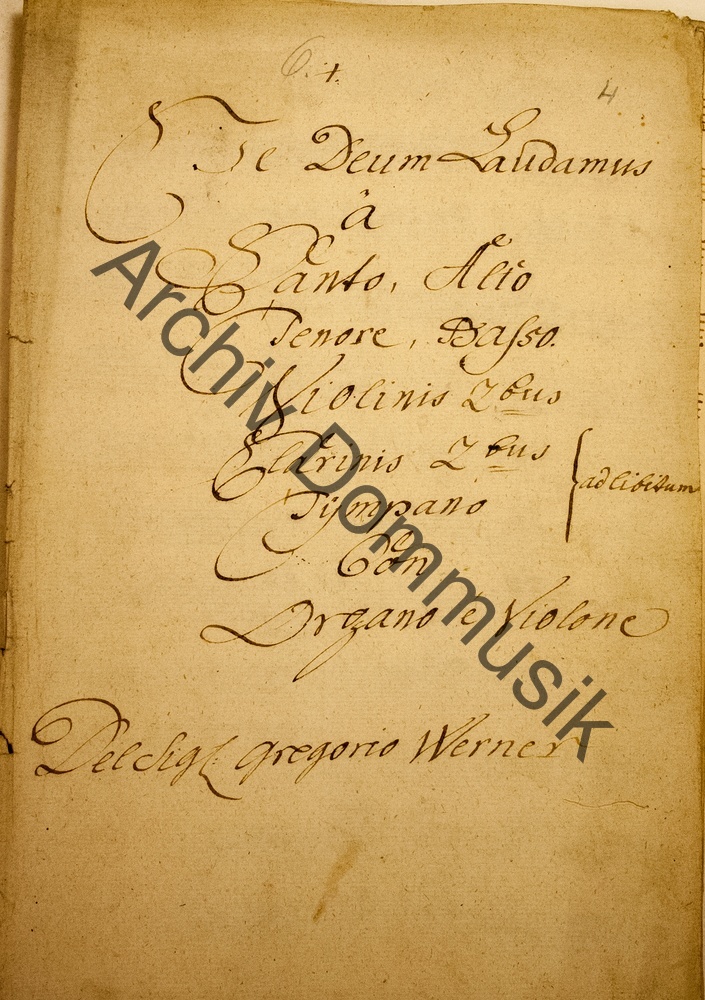 6. +.
4
Te Deum Laudamus
â
Canto, Alto
Tenore, Basso.
Violinis 2bus
Clarinis 2bus
Tÿmpano
ad libitum
Con
Organo è Violone
Del Sigl Gregorio Werner
Archiv Dommusik